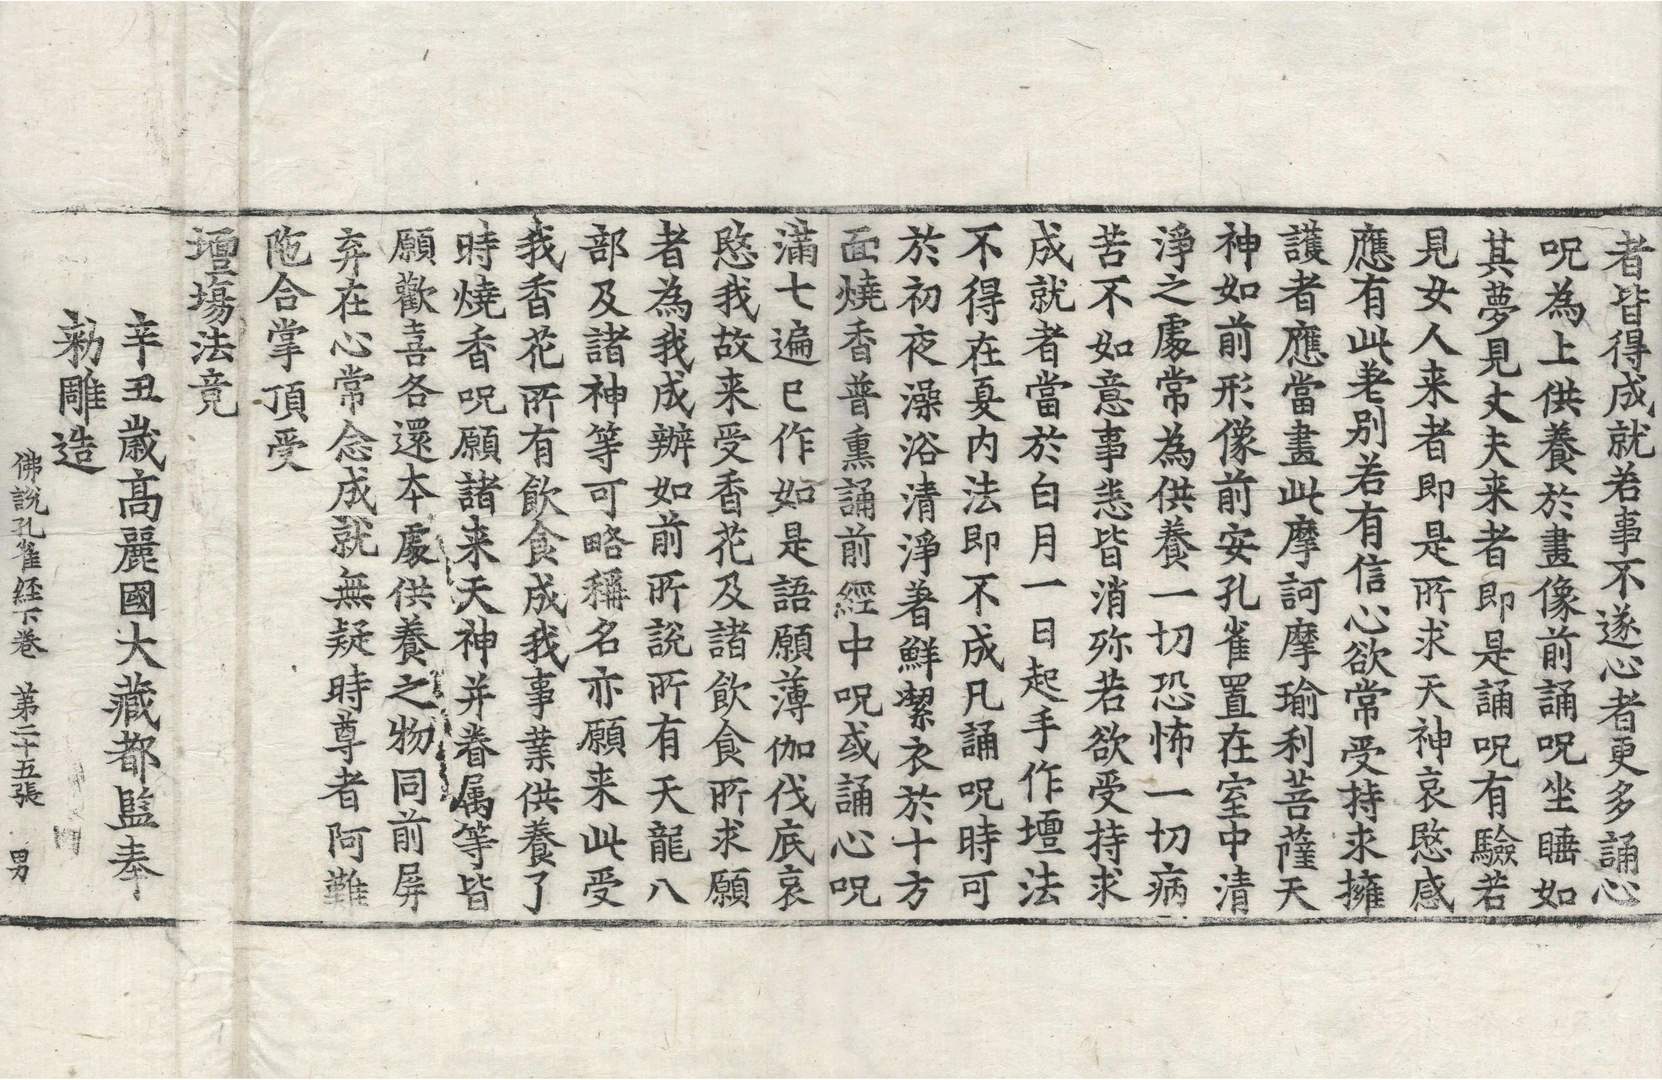 者皆得成就若事不遂心者更多誦心
呪為上供養於畫像前誦呪坐睡如
其夢見丈夫来者即是誦呪有驗若
見女人来者即是所求天神哀愍感
應有此老別若有信心欲常受持求擁
護者應當畫此摩訶摩瑜利菩薩天
神如前形像前安孔雀置在室中清
淨之處常為供養一切恐怖一切病
苦不如意事悉皆消弥若欲受持求
成就者當於白月一日起手作壇法
不得在夏內法即不成凡誦呪時可
於初夜澡浴清淨著鮮潔衣於十方
面燒香普熏誦前經中呪或誦心呪
滿七遍已作如是語願薄伽伐底哀
愍我故来受香花及諸飲食所求願
者為我成辦如前所說所有天龍八
部及諸神等可略稱名亦願来此受
我香花所有飲食成我事業供養了
時燒香呪願諸来天神并眷属等皆
願歡喜各還本處供養之物同前屏
弃在心常念成就無疑時尊者阿難
陁合掌頂受
壇場法竟
辛丑歲高麗國大藏都監奉
勑雕造
佛說孔雀経下卷 第二十五張 男